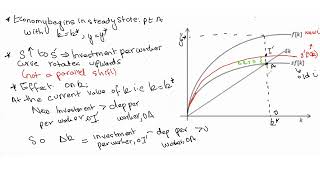 * Economy begins in steady state: pt A
with k=k*, y=y*
* s↑ to s' ⇒ Investment per worker
curve rotates upwards
(not a parallel shift)
* Effect on k
At the current value of k i.e k=k*
New Investment > dep per
per worker, worker, OA
So Δk = investment - dep per >0
per worker, worker, OA
k*
k